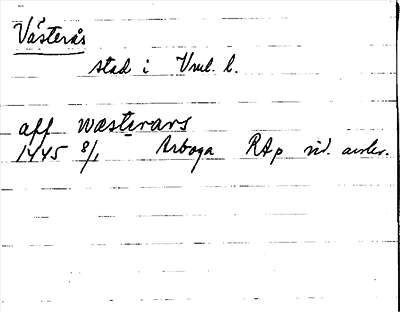 Västerås
stad i Vml. l.
aff wæsterars
1445 8/1 Arboga RAp vid. avskr.